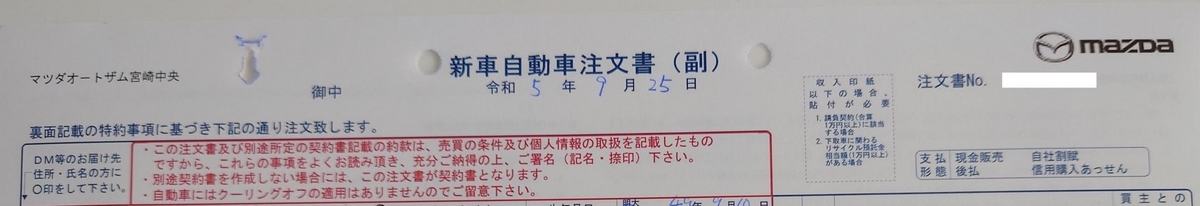 新車自動車注文書(副)
mazda
マツダオートザム宮崎中央
御中
令和 5 年 9 月 25 日
注文書No.
収入印紙
以下の場合、
貼付が必要
1. 請負契約(合算
1万円以上)に該当
する場合
2. 下取車に関わる
リサイクル預託金
相当額(1万円以上)
がある場合
裏面記載の特約事項に基づき下記の通り注文致します。
DM等のお届け先
住所・氏名の方に
○印をして下さい。
・この注文書及び別途所定の契約書記載の約款は、売買の条件及び個人情報の取扱を記載したもの
ですから、これらの事項をよくお読み頂き、充分ご納得の上、ご署名(記名・捺印)下さい。
・別途契約書を作成しない場合には、この注文書が契約書となります。
・自動車にはクーリングオフの適用はありませんのでご留意下さい。
支払 現金販売 自社割賦
形態 後払 信用購入あっせん
買主との